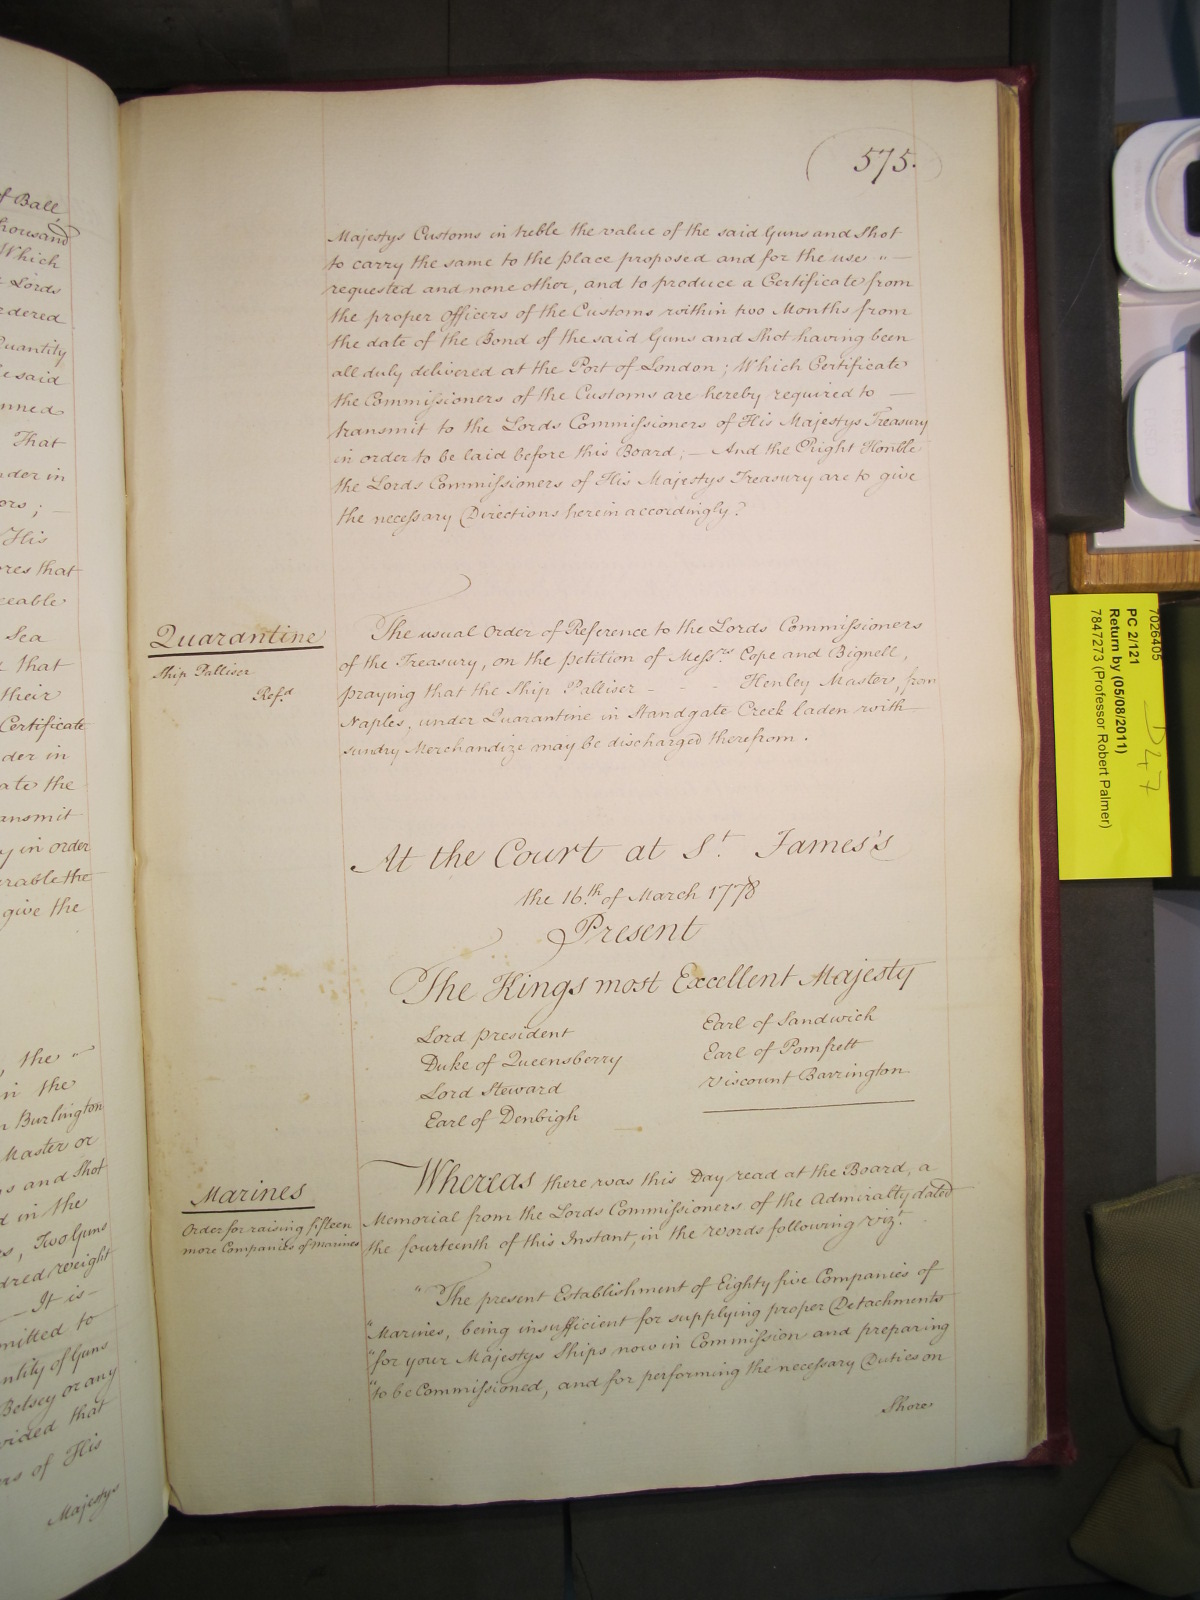 f Ball,
housand
Which
Lords
rdered
Quantity
e said
nned
That
nder in
ors; —
His
res that
ceable
Sea
t that
their
Certificate
der in
ate the
ansmit
y in order
rable the
give the
, the "
in the
n Burlington
Master or
s and Shot
d in the
es, Two Guns
dred weight
— It is —
mitted to
ntity of Guns
Belsey or any
vided that
rs of His
Majestys
575.
Majestys Customs in treble the value of the said Guns and Shot
to carry the same to the place proposed and for the use " —
requested and none other, and to produce a Certificate from
the proper Officers of the Customs within two Months from
the date of the Bond of the said Guns and Shot having been
all duly delivered at the Port of London; Which Certificate
the Commissioners of the Customs are hereby required to —
transmit to the Lords Commissioners of His Majestys Treasury
in order to be laid before this Board; — And the Right Honble
the Lords Commissioners of His Majestys Treasury are to give
the necessary Directions herein accordingly.
Quarantine
Ship Palliser
Refd.
The usual Order of Reference to the Lords Commissioners
of the Treasury, on the petition of Messrs. Cope and Bignell,
praying that the Ship Palliser - - - Henley Master, from
Naples, under Quarantine in Standgate Creek laden with
sundry Merchandize may be discharged therefrom.
At the Court at St. James's
the 16th. of March 1778
Present
The Kings most Excellent Majesty
Lord President
Duke of Queensberry
Lord Steward
Earl of Denbigh
Earl of Sandwich
Earl of Pomfrett
Viscount Barrington
Marines
Order for raising fifteen
more Companies of Marines
Whereas there was this Day read at the Board, a
Memorial from the Lords Commissioners of the Admiralty dated
the fourteenth of this Instant, in the words following viz.
"The present Establishment of Eighty five Companies of
"Marines, being insufficient for supplying proper Detachments
"for your Majestys Ships now in Commission and preparing
"to be Commissioned, and for performing the necessary Duties on
Shore
7026405
PC 2/121
Return by (05/08/2011)
7847273 (Professor Robert Palmer)
D47